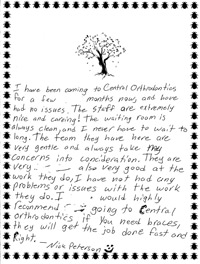 I have been coming to Central Orthodontics
for a few months now, and have
had no issues. The staff are extremely
nice and caring! The waiting room is
always clean, and I never have to wait to
long. The team they have here are
very gentle and always take my
concerns into concideration. They are
very also very good at the
work they do, I have not had any
problems or issues with the work
they do. I would highly
recommend going to Central
orthodontics, if you need braces,
they will get the job done fast and
Right.
- Nick Peterson